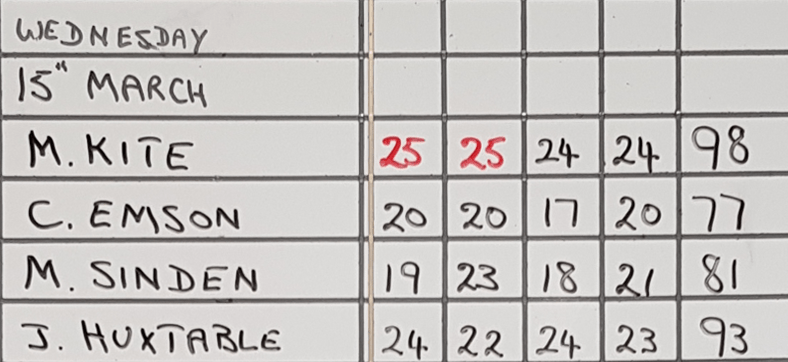 WEDNESDAY
15TH MARCH
M. KITE 25 25 24 24 98
C. EMSON 20 20 17 20 77
M. SINDEN 19 23 18 21 81
J. HUXTABLE 24 22 24 23 93